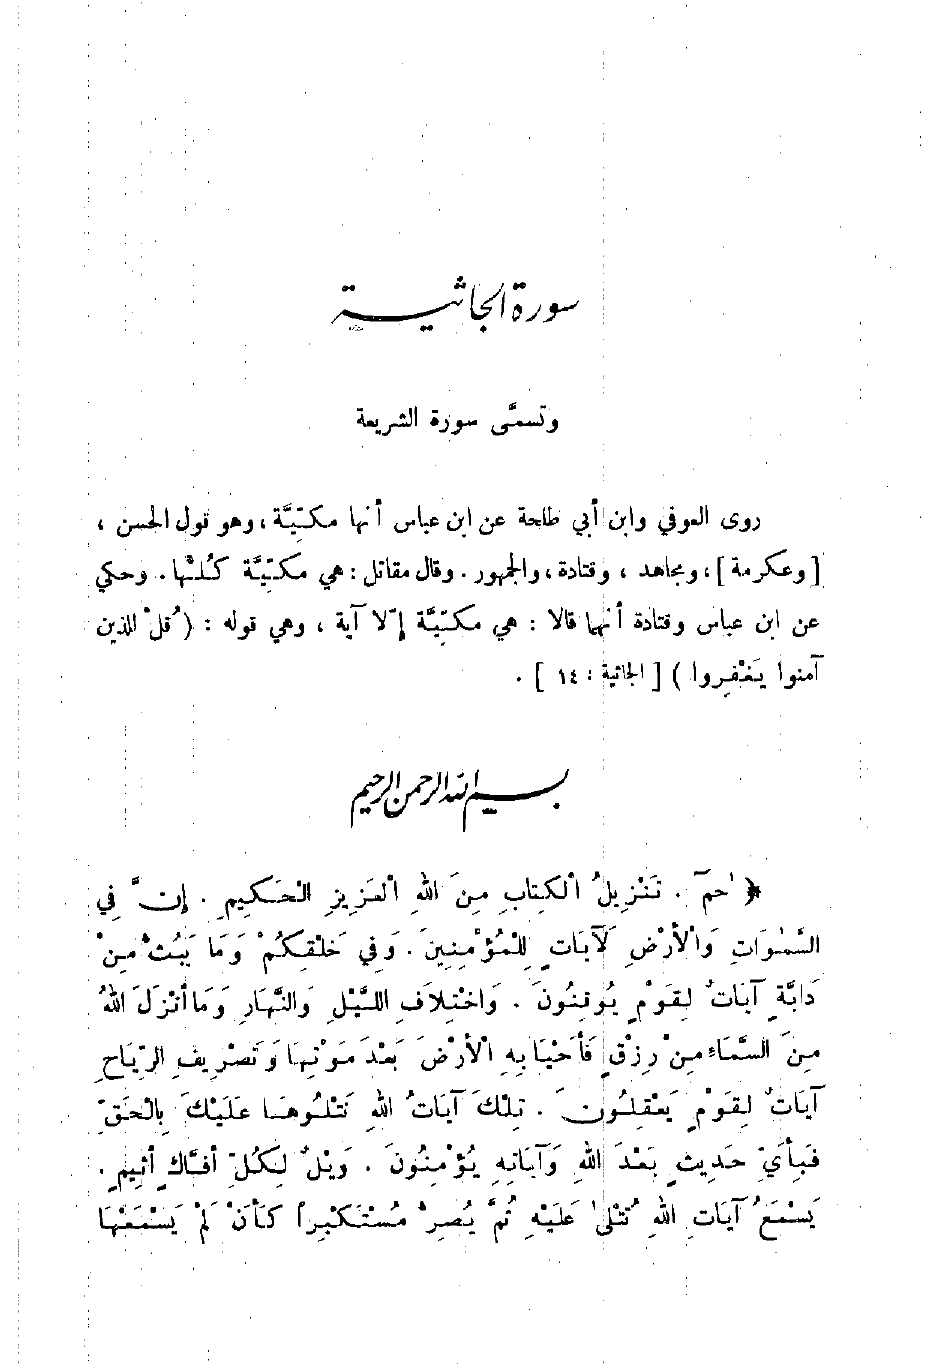 سورة الجاثية
وتسمَّى سورة الشريعة
روى العوفي وابن أبي طلحة عن ابن عباس أنها مكّيَّة، وهو قول الحسن ،
[وعكرمة]، ومجاهد ، وقتادة، والجمهور . وقال مقاتل : هي مكّيَّة كُلّها. وحكي
عن ابن عباس وقتادة أنهما قالا : هي مكّيَّة إلّا آية ، وهي قوله : ( قُلْ للذين
آمنوا يَغْفِروا ) [ الجاثية : ١٤ ] .
بسم الله الرحمن الرحيم
﴿ حٰمۤ . تَنْزِيلُ الْكِتابِ مِنَ اللهِ الْعَزِيزِ الْحَكيمِ . إِنَّ في
السَّمٰوَاتِ وَالْأَرْضِ لَآيَاتٍ لِلْمُؤْمِنِينَ . وَفِي خَلْقِكُمْ وَمَا يَبُثُّ مِنْ
دَابَّةٍ آيَاتٌ لِقَوْمٍ يُوقِنُونَ . وَاخْتِلَافِ اللَّيْلِ وَالنَّهَارِ وَمَا أَنْزَلَ اللهُ
مِنَ السَّمَاءِ مِنْ رِزْقٍ فَأَحْيَا بِهِ الْأَرْضَ بَعْدَ مَوْتِهَا وَتَصْرِيفِ الرِّيَاحِ
آيَاتٌ لِقَوْمٍ يَعْقِلُونَ . تِلْكَ آيَاتُ اللهِ نَتْلُوهَا عَلَيْكَ بِالْحَقِّ
فَبِأَيِّ حَدِيثٍ بَعْدَ اللهِ وَآيَاتِهِ يُؤْمِنُونَ . وَيْلٌ لِكُلِّ أَفَّاكٍ أَثِيمٍ .
يَسْمَعُ آيَاتِ اللهِ تُتْلَىٰ عَلَيْهِ ثُمَّ يُصِرُّ مُسْتَكْبِراً كَأَنْ لَمْ يَسْمَعْهَا